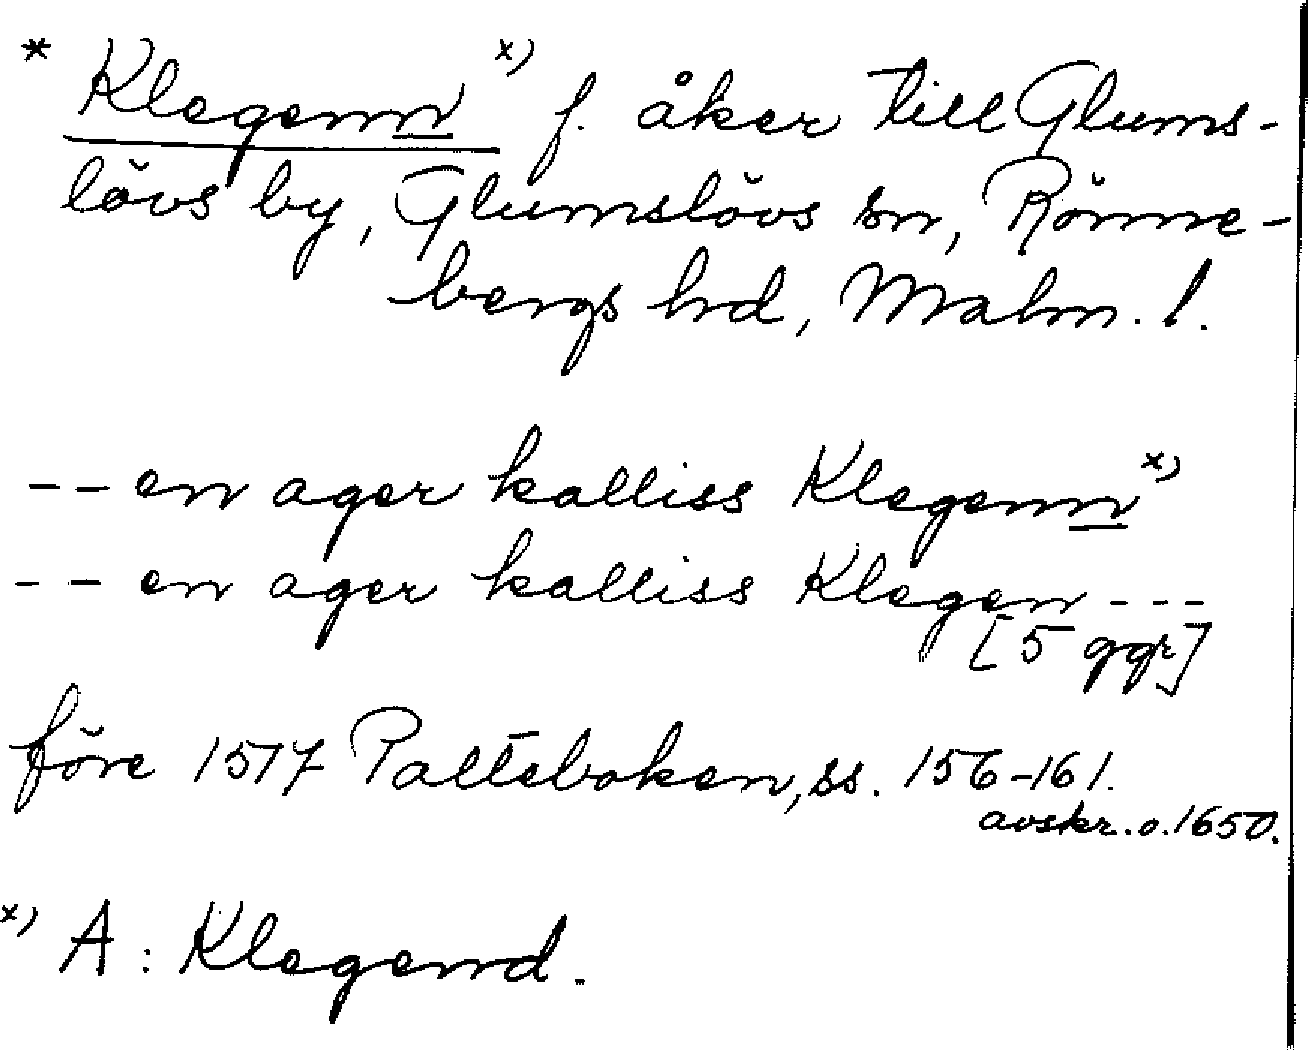 * Klegenn x) f. åker till Glums-
lövs by, Glumslövs sn, Rönne-
bergs hrd, Malm. l.
-- en ager kalliss Klegenn x)
-- en ager kalliss Klegen ---
[5 ggr]
före 1517 Palteboken, ss. 156-161.
avskr. o. 1650.
x) A: Klegend.